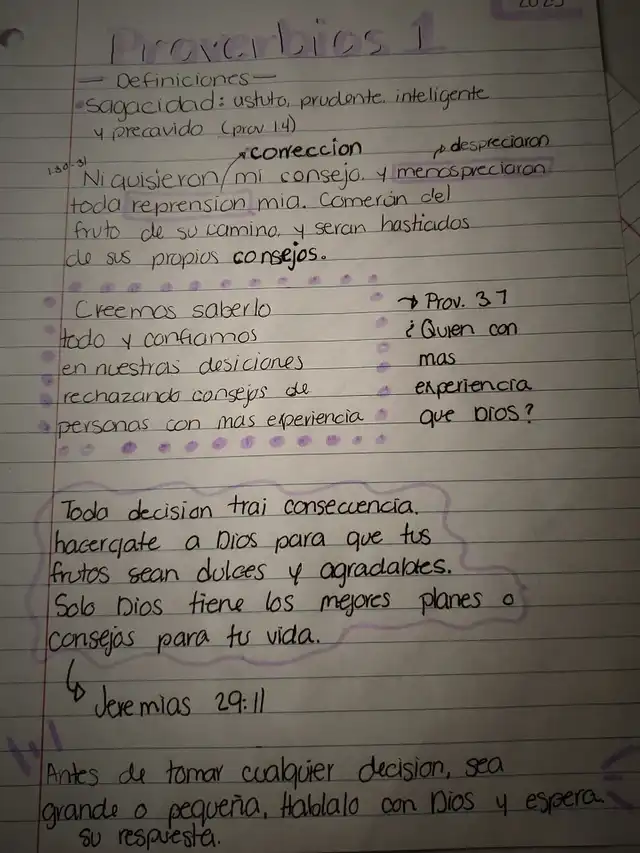 2025
Proverbios 1
— Definiciones —
• Sagacidad: astuto, prudente, inteligente
y precavido (prov 1.4)
correccion
despreciaron
1:30-31
Ni quisieron mi consejo, y menospreciaron
toda reprension mia. Comerán del
fruto de su camino, y seran hastiados
de sus propios consejos.
Creemos saberlo
todo y confiamos
en nuestras desiciones
rechazando consejos de
personas con mas experiencia
→ Prov. 3 7
¿Quien con
mas
experiencia
que Dios?
Toda decision trai consecuencia.
hacerqate a Dios para que tus
frutos sean dulces y agradables.
Solo Dios tiene los mejores planes o
consejos para tu vida.
↳ Jeremias 29:11
Antes de tomar cualquier decision, sea
grande o pequeña, Hablalo con Dios y espera
su respuesta.